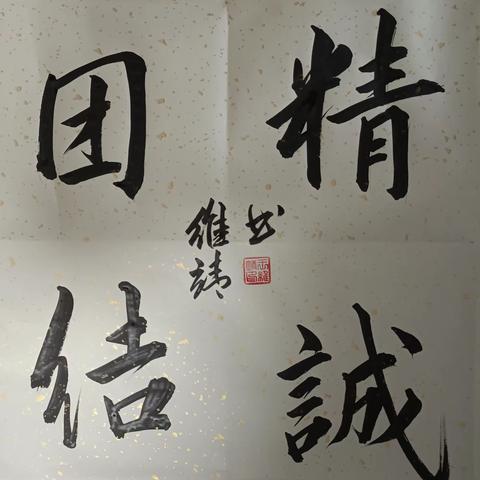 精誠
团结
維靖
书